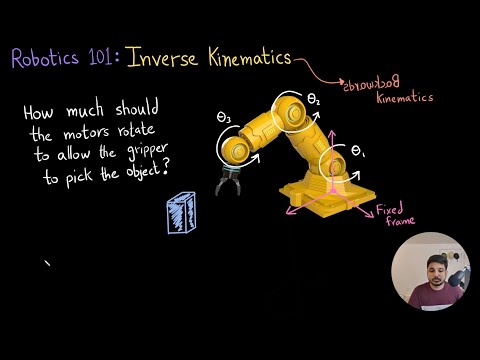 Robotics 101: Inverse Kinematics
Backwards
Kinematics
How much should
the motors rotate
to allow the gripper
to pick the object?
θ₃
θ₂
θ₁
Fixed
frame